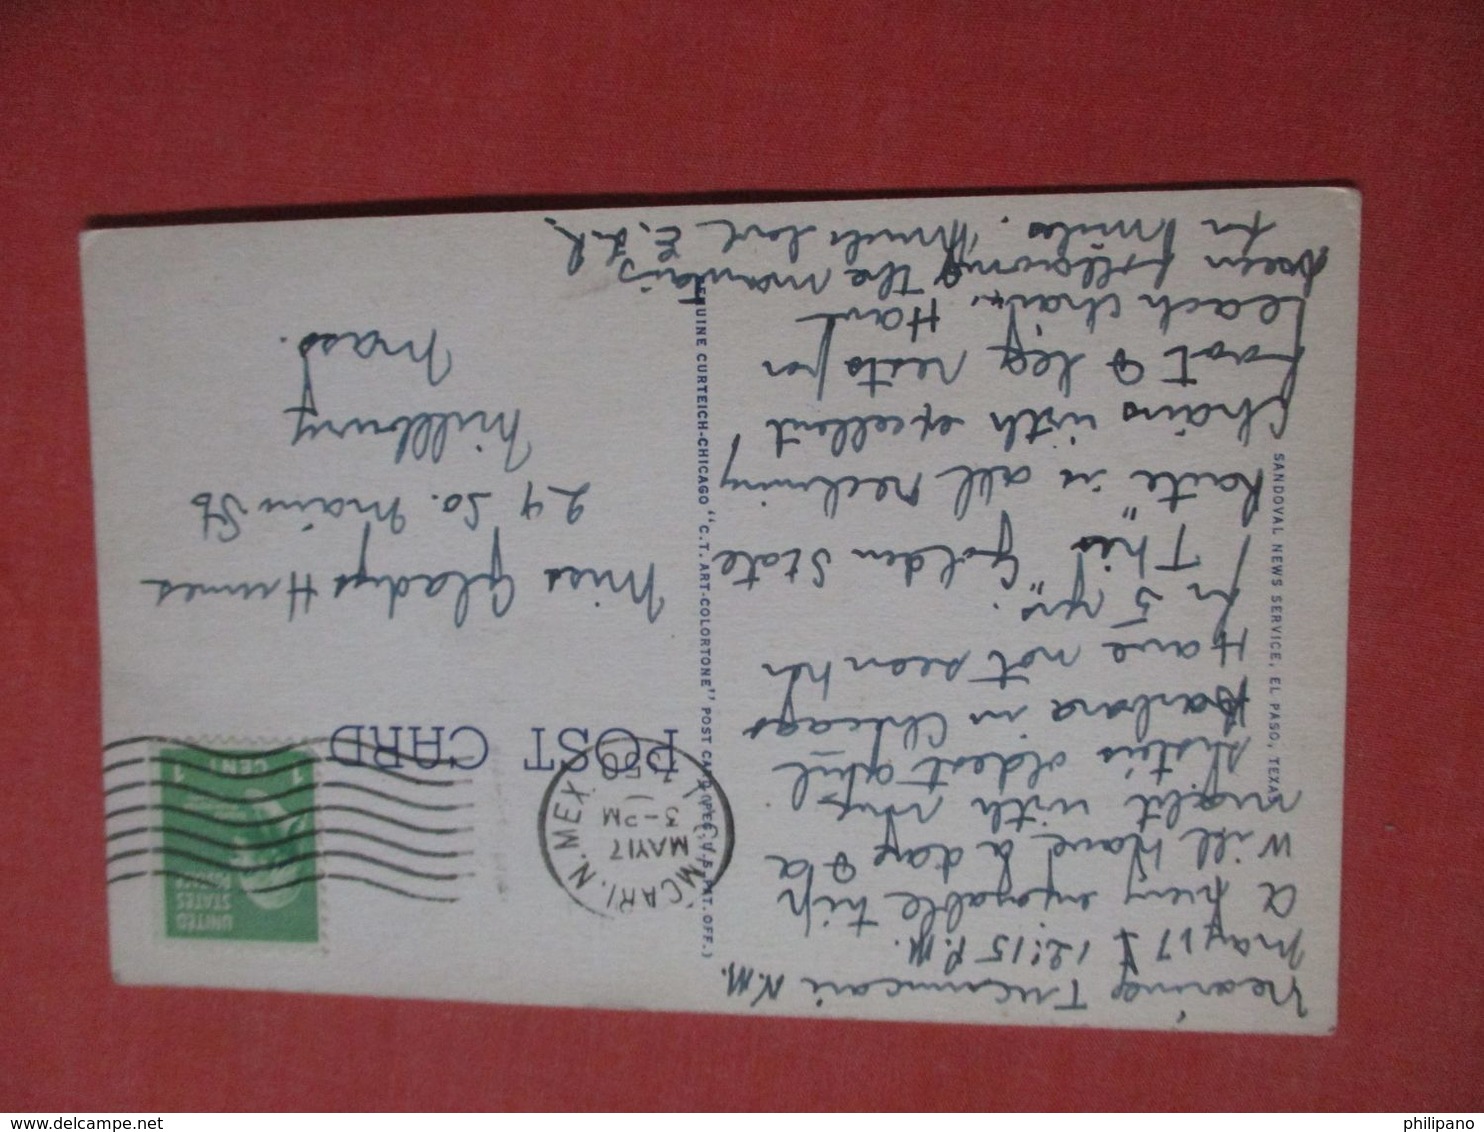 Nearing Tucumcari N.M.
May 17 12:15 P.M.
A very enjoyable trip
Will have a day & a
night with my
sister's oldest girl
Barbara in Chicago
Have not seen her
in 5 yrs.
This "Golden State
Route" is all reclining
chairs with excellent
foot & leg rests for
each chair. Have
been following the mountains
for miles. Much love E.L.R.
SANDOVAL NEWS SERVICE, EL PASO, TEXAS
GENUINE CURTEICH-CHICAGO "C.T. ART-COLORTONE" POST CARD (REG. U.S. PAT. OFF.)
POST CARD
TUCUMCARI, N. MEX.
MAY 17
3-PM
1950
UNITED
STATES
1 CENT 1
Miss Gladys Humes
24 So. Main St
Millbury
Mass.
philipano